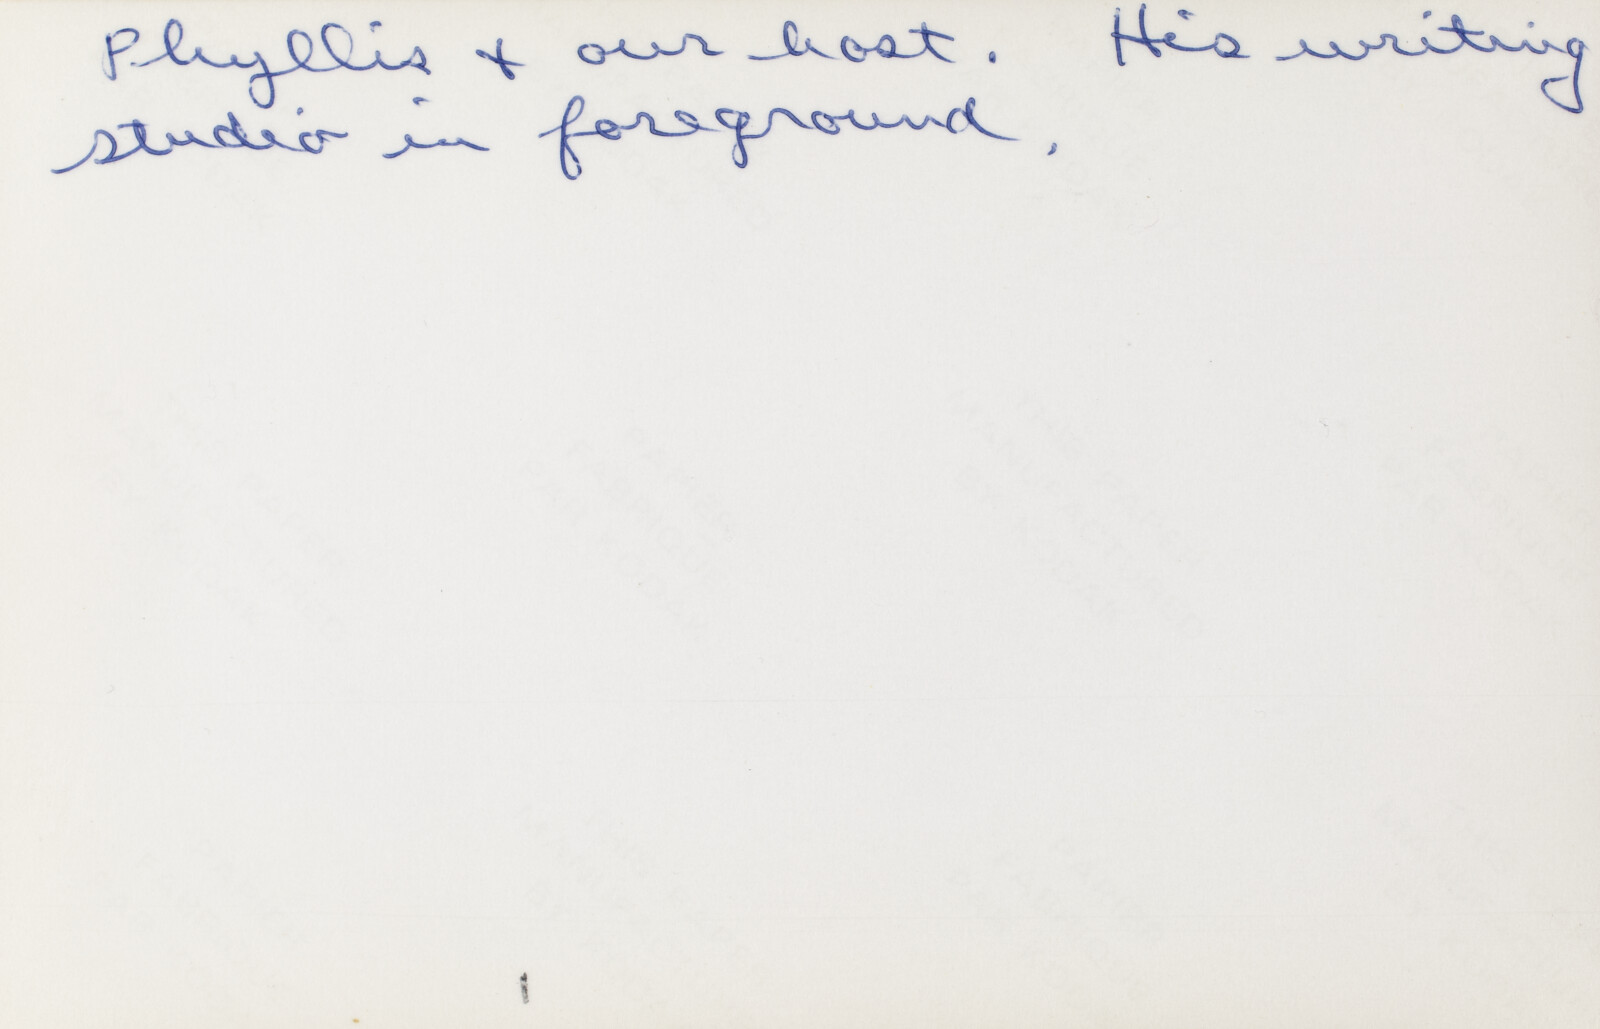 Phyllis & our host. His writing
studio in foreground.